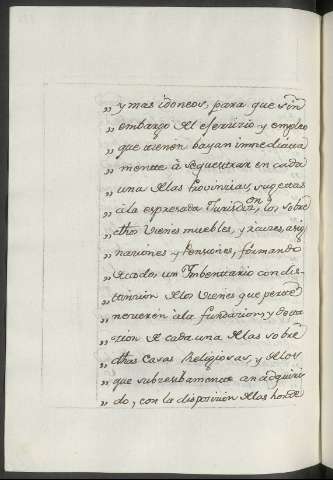 „ y mas idoneos, para que sin
„ embargo del exercicio y empleo
„ que tienen bayan immediata
„ mente à sequestrar en cada
„ una delas Provincias, sugettas
„ ala espresada Jurisdizon, los sobre
„ dhos vienes muebles, y raizes, asig
„ naziones y Pensiones, formando
„ decada un Imbentario con dis=
„ tinzion delos vienes que perte=
„ necieren ala fundazion, y dota
„ cion de cada una delas sobre
„ dhas Casas Religiosas, y delos
„ que subcesibamente an adquiri
„ do, con la disposizion delas horde